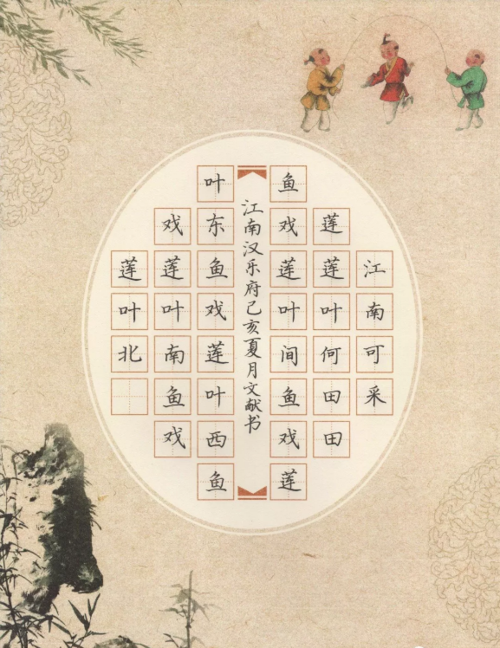 江南可采
莲莲叶何田田
鱼戏莲叶间鱼戏莲
江南汉乐府己亥夏月文献书
叶东鱼戏莲叶西鱼
戏莲叶南鱼戏
莲叶北